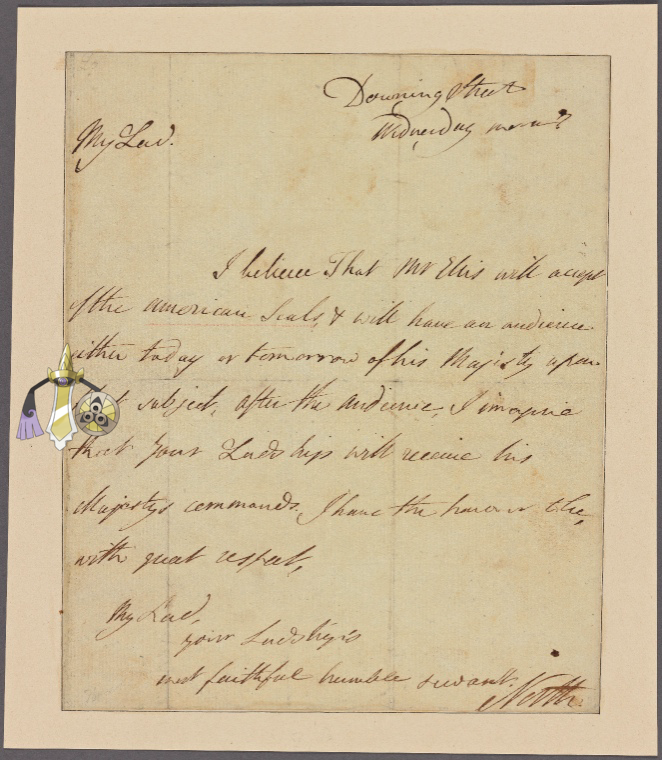 Downing Street
Wednesday morn.g
My Lord.
I believe That Mr Ellis will accept
of the American Seals, & will have an audience
either today or tomorrow of his Majesty upon
subject, after the audience, I imagine
that your Lordships will receive his
Majestys commands. I have the honour to be,
with great respect,
My Lord,
your Lordship's
most faithful humble servant.
North